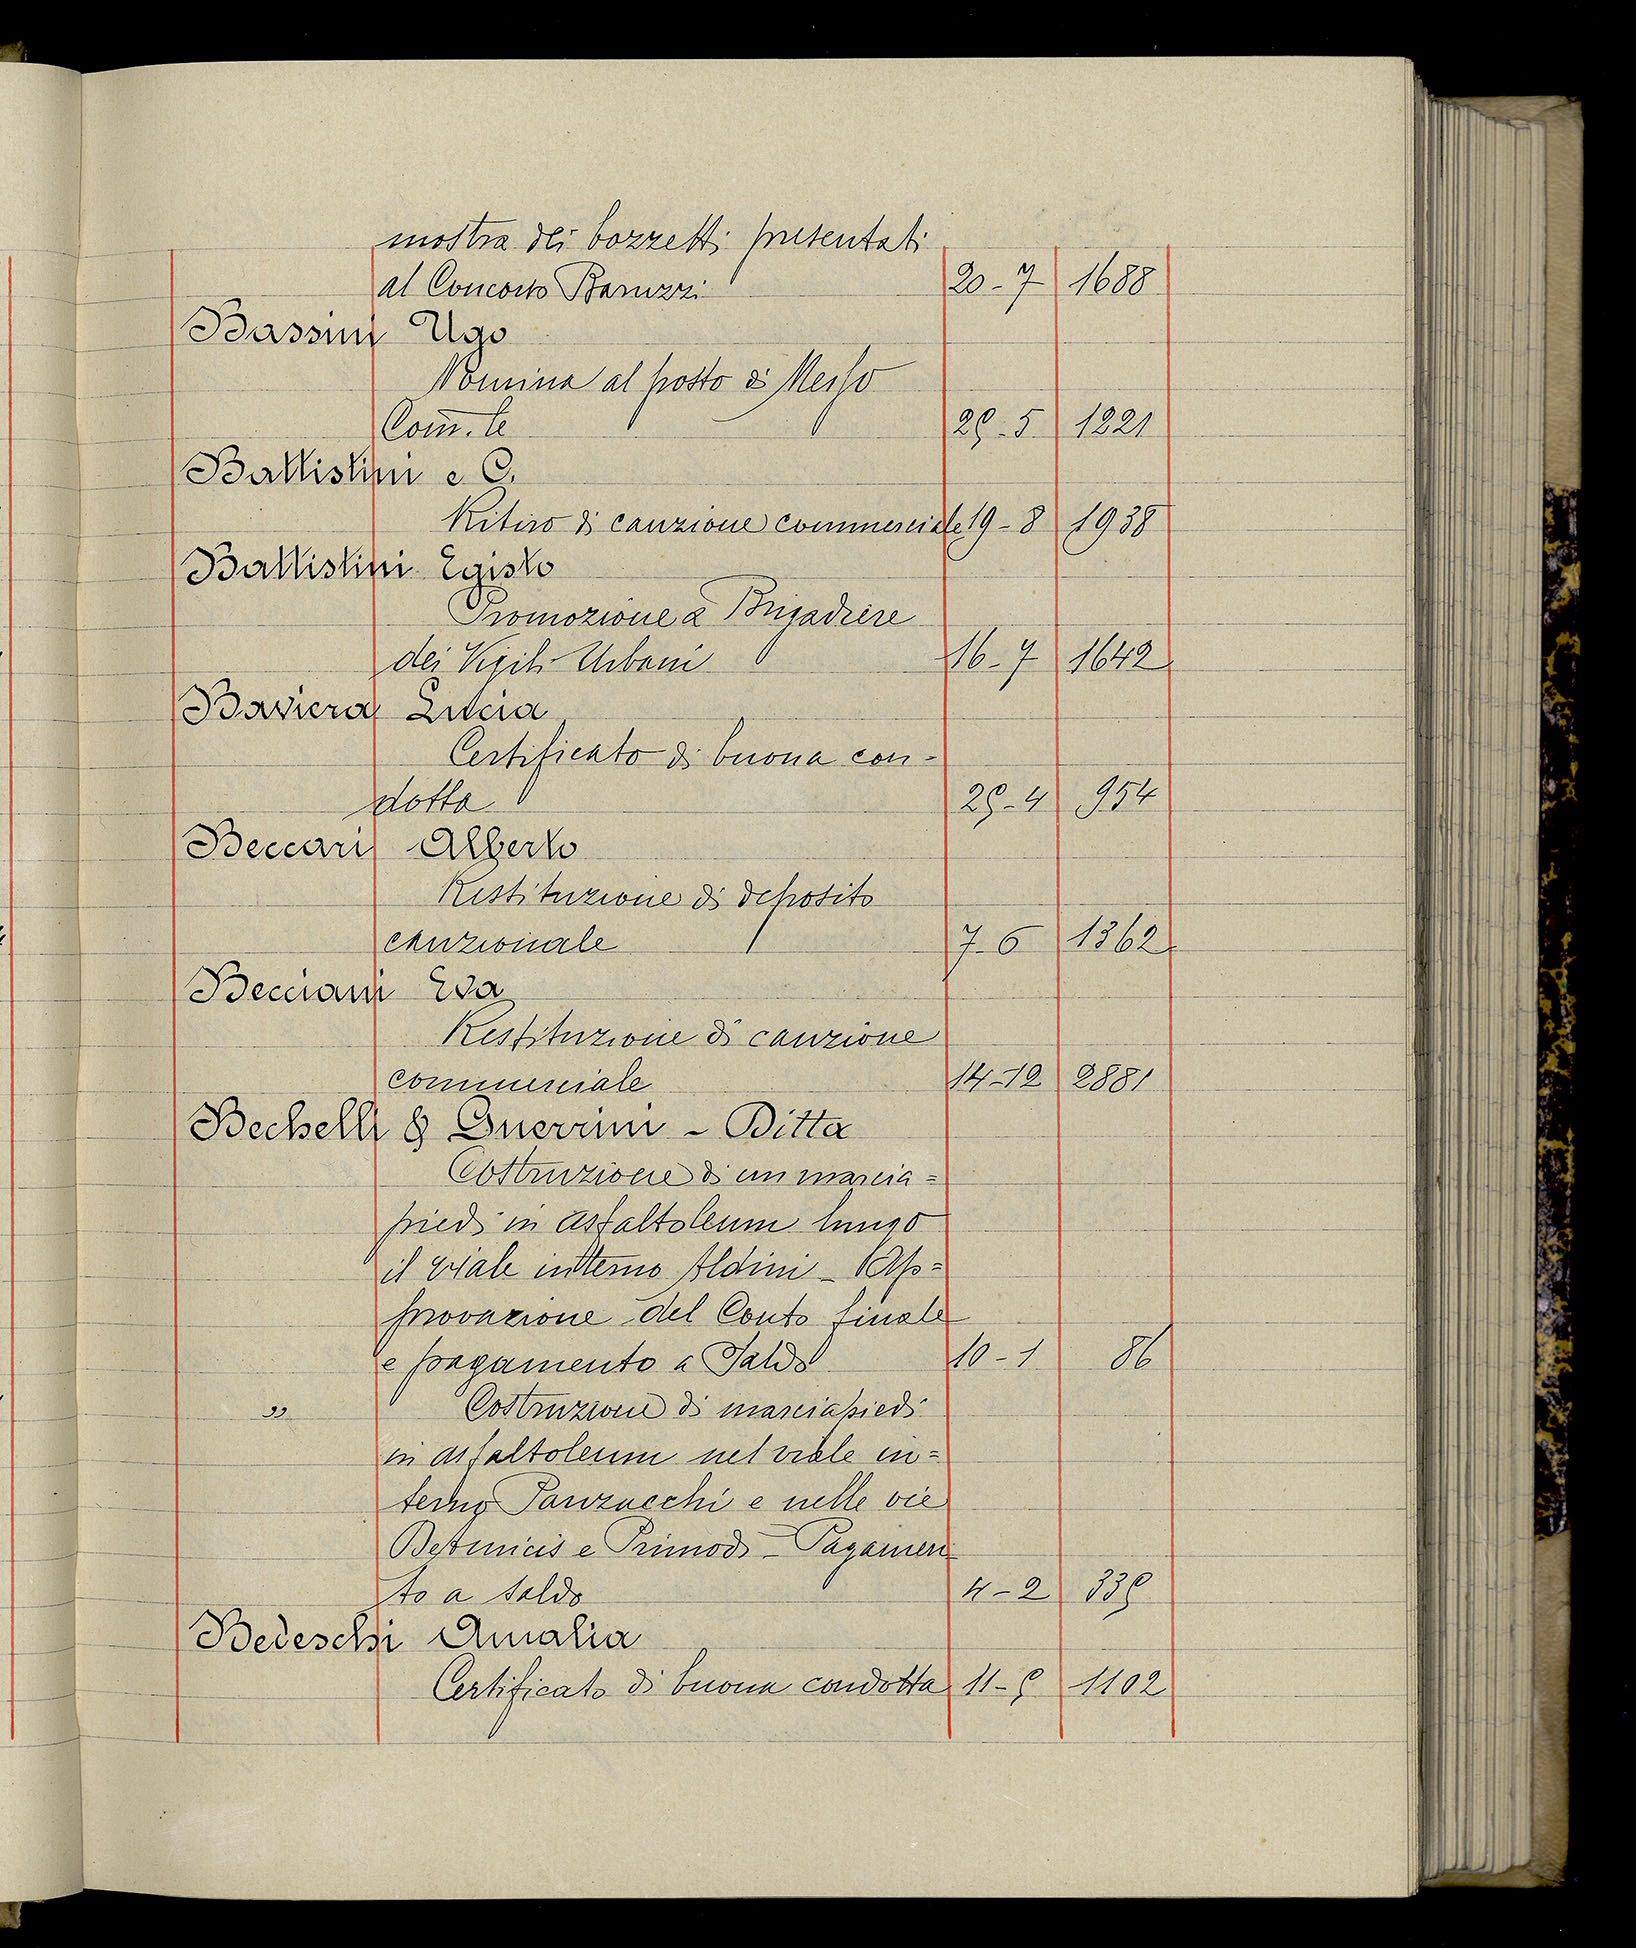 mostra dei bozzetti presentati
al Concorso Baruzzi 20-7 1688
Bassini Ugo
Nomina al posto di Messo
Com.le 25-5 1221
Battistini e C.
Ritiro di cauzione commerciale 19-8 1938
Battistini Egisto
Promozione a Brigadiere
dei Vigili Urbani 16-7 1642
Baviera Lucia
Certificato di buona con-
dotta 25-4 954
Beccari Alberto
Restituzione di deposito
cauzionale 7-6 1362
Becciani Eva
Restituzione di cauzione
commerciale 14-12 2881
Bechelli & Guerrini - Ditta
Costruzione di un marcia=
piedi in asfaltoleum lungo
il viale interno Aldini - Ap=
provazione del Conto finale
e pagamento a Saldo 10-1 86
" Costruzione di marciapiedi
in asfaltoleum nel viale in=
terno Panzacchi e nelle vie
DeAmicis e Primodì - Pagamen-
to a saldo 4-2 335
Bedeschi Amalia
Certificato di buona condotta 11-5 1102